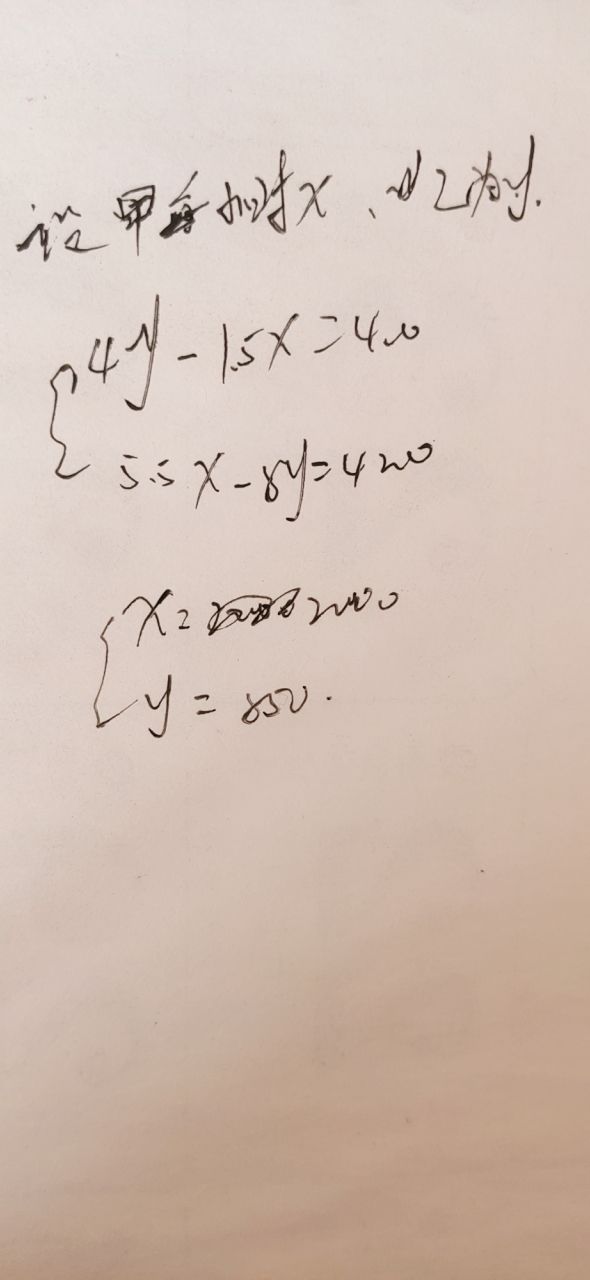 设甲每小时x、乙为y.
4y - 1.5x = 400
5.5x - 8y = 4200
x = 2000
y = 850.